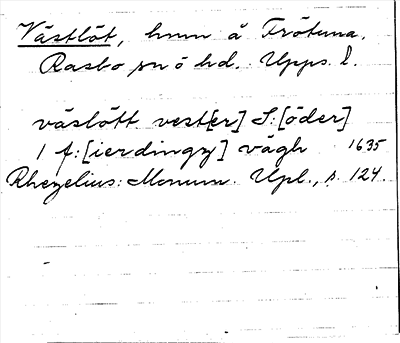 Västlöt, hmn å Frötuna.
Rasbo sn ö hd. Upps. l.
väslött vest[er] S:[öder]
1 f:[ierdingz] vägh 1635
Rhezelius: Monum. Upl., s. 124.